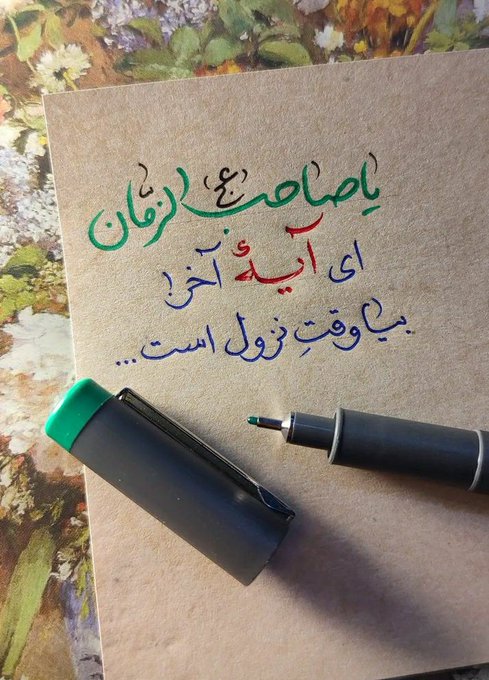 یا صاحب الزمّان (عج)
ای آیهٔ آخر!
بیا وقتِ نزول است...